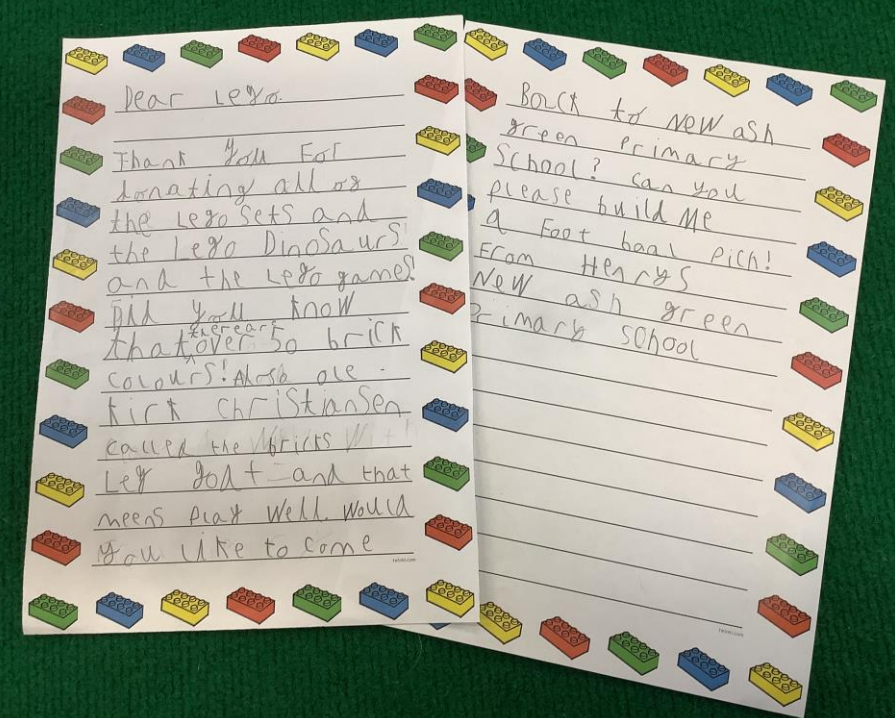 Dear Lego.
Thank you For
donating all os
the Lego Sets and
the Lego Dinosaurs
and the Lego games!
Did you know
that there are over 50 brick
colours! Also ole
kirk christiansen
called the bricks
Leg godt and that
meens play well. Would
you like to come
twinkl.com
Back to New ash
green Primary
School? can you
please build Me
a Foot baal Pich!
From Henrys
New ash green
Primary school
twinkl.com